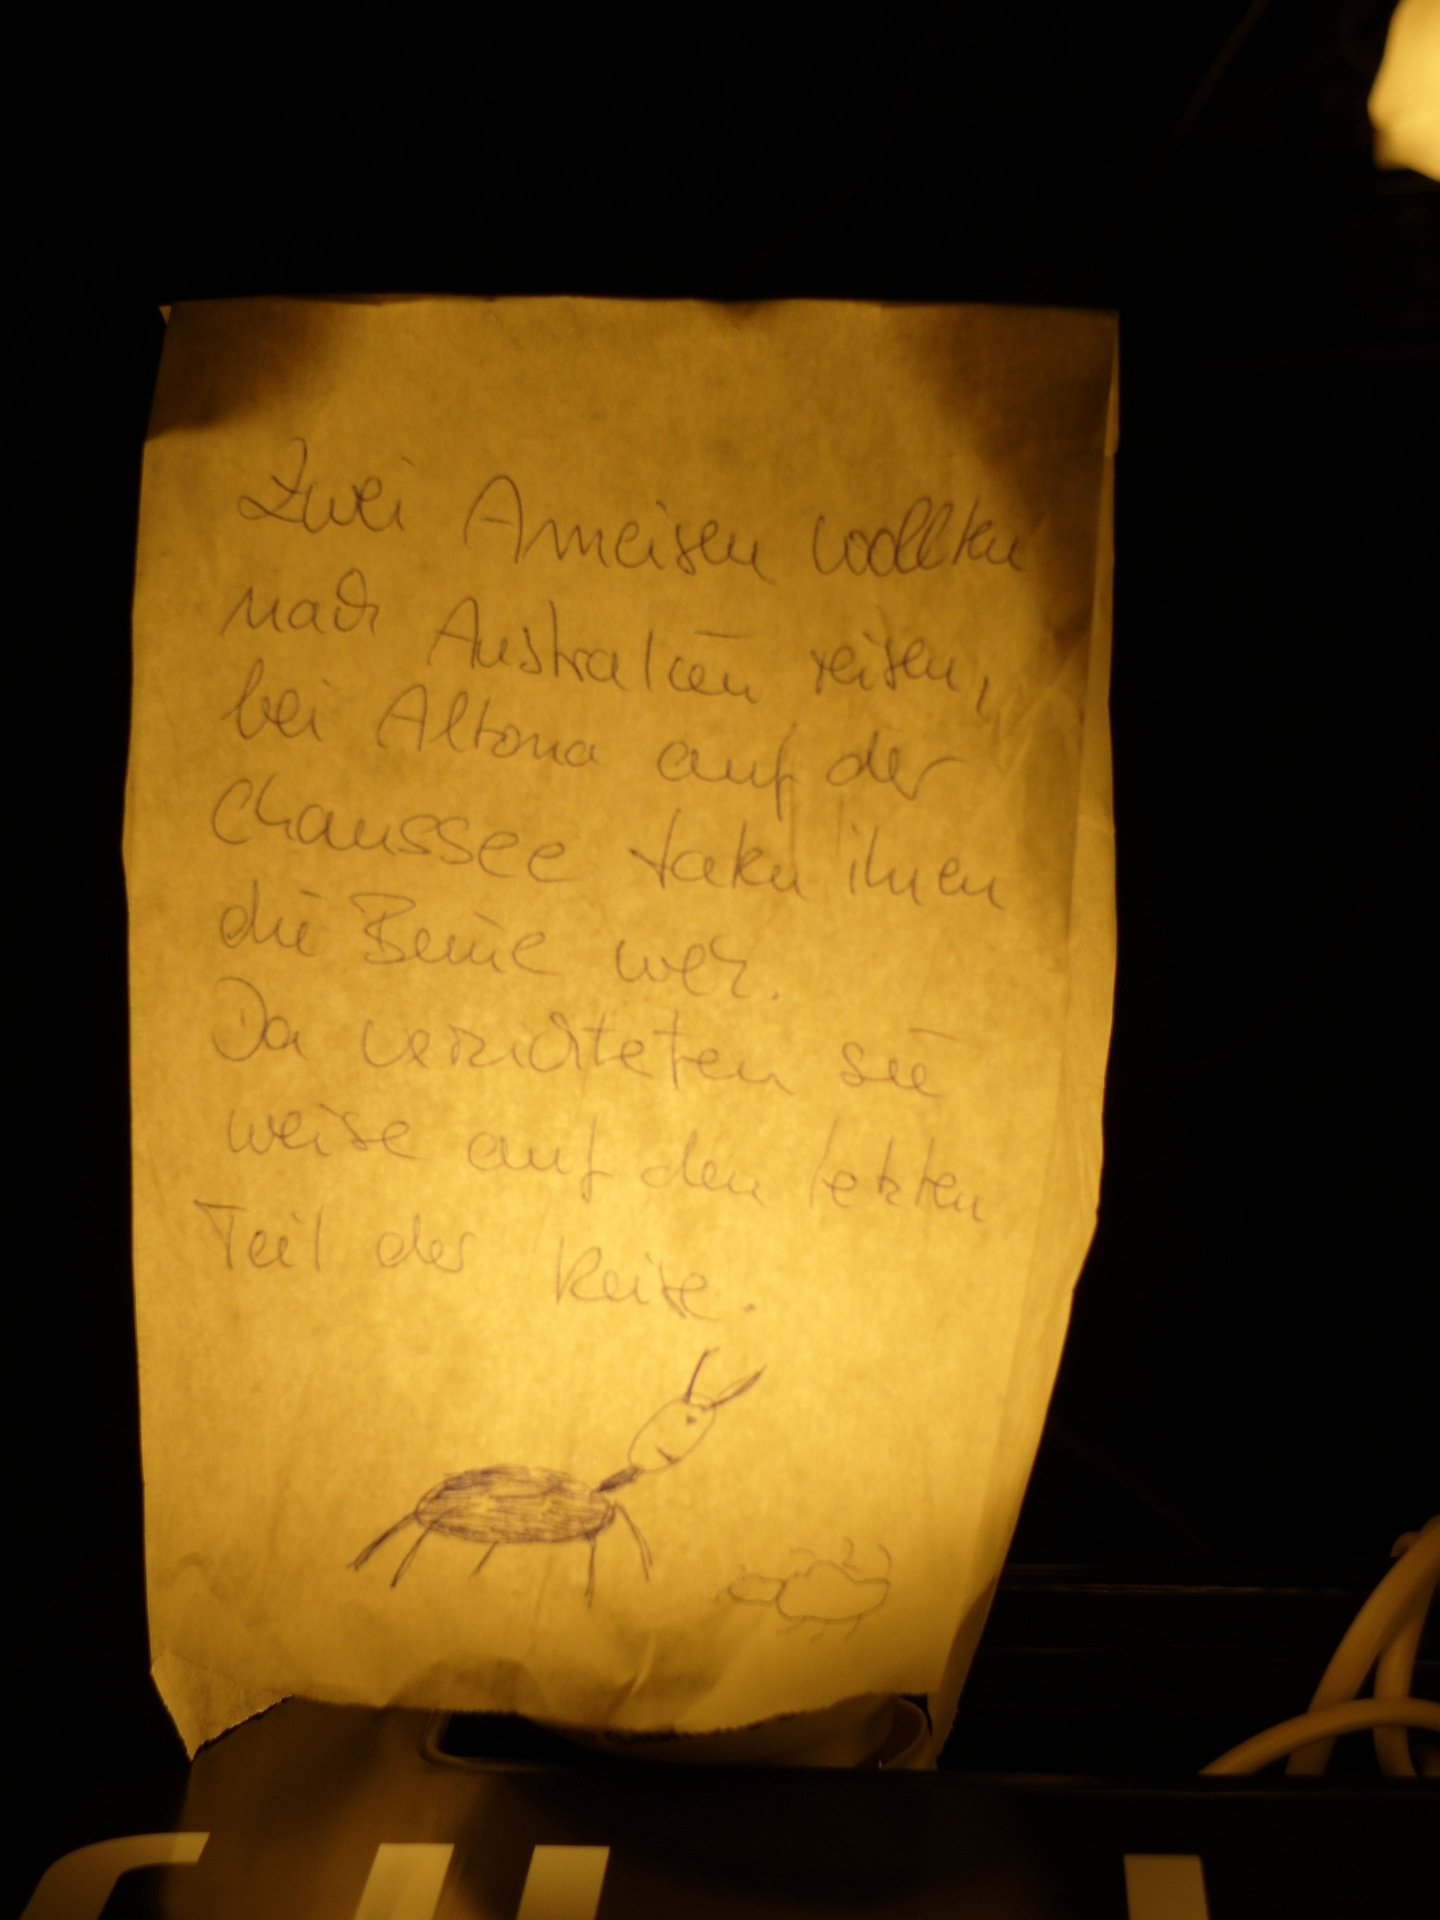 Zwei Ameisen wollten
nach Australien reisen,
bei Altona auf der
Chaussee taten ihnen
die Beine weh.
Da verzichteten sie
weise auf den letzten
Teil der Reise.